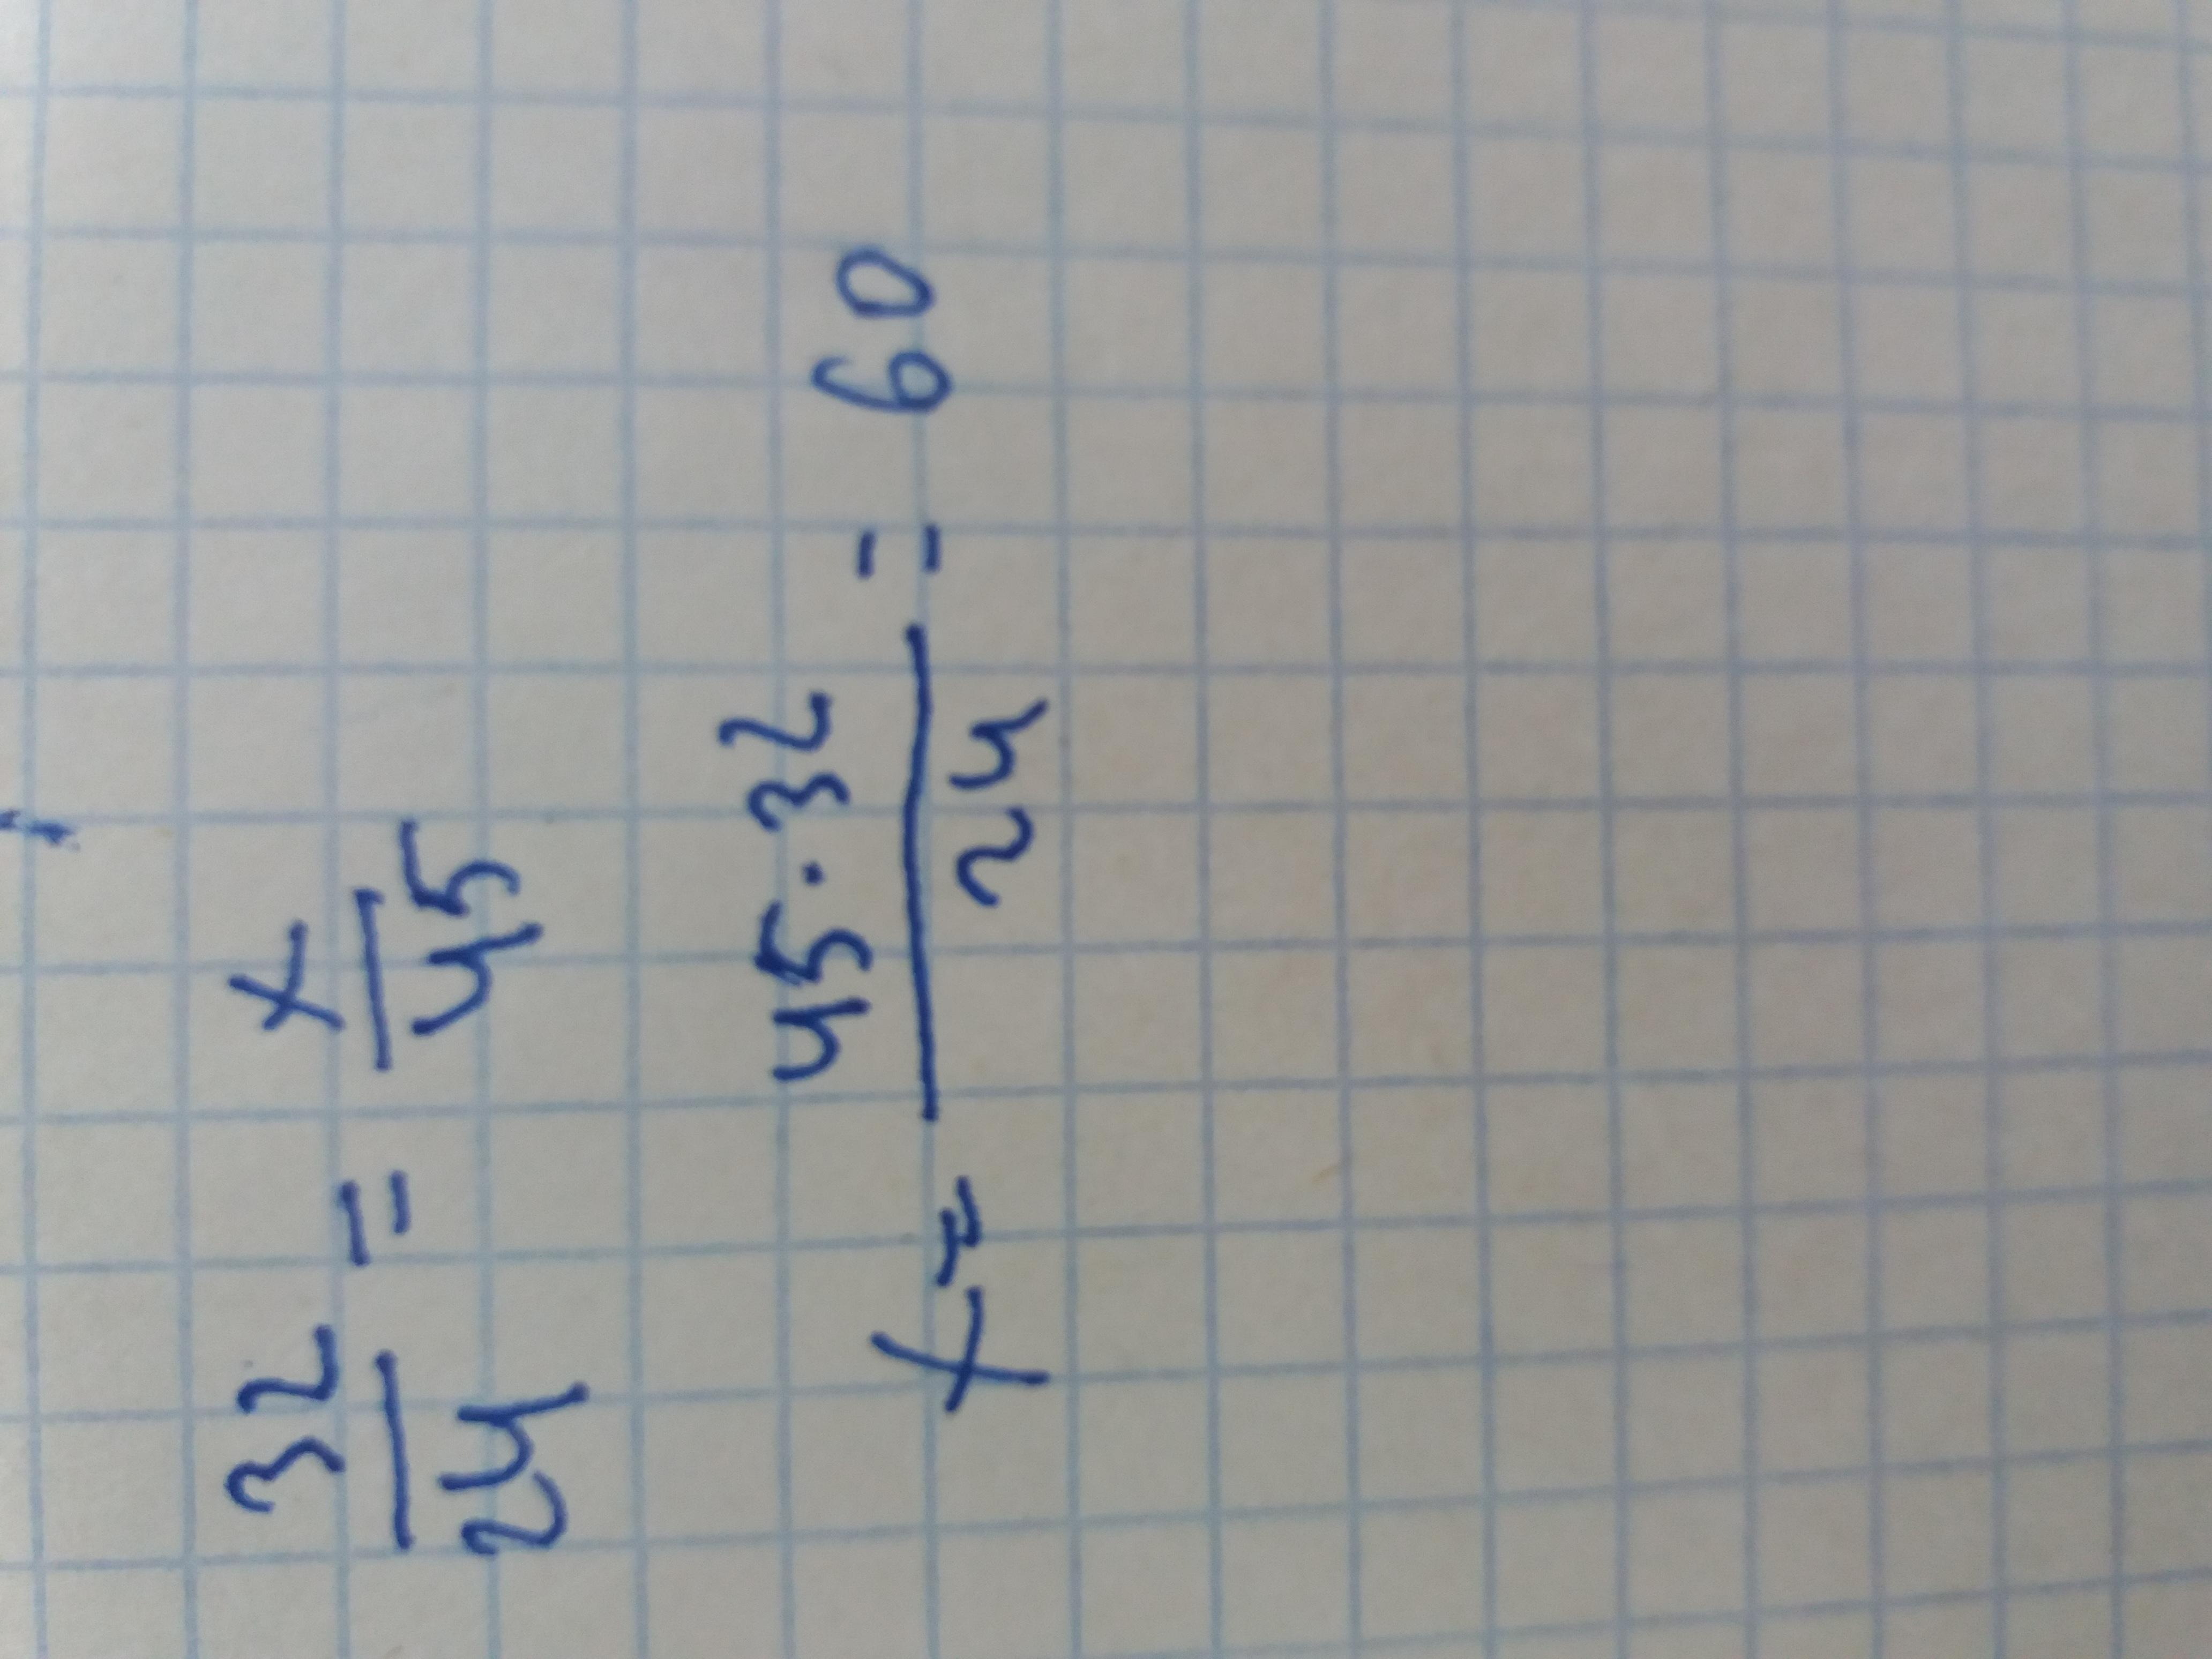 32/24 = x/45
x = 45·32/24 = 60